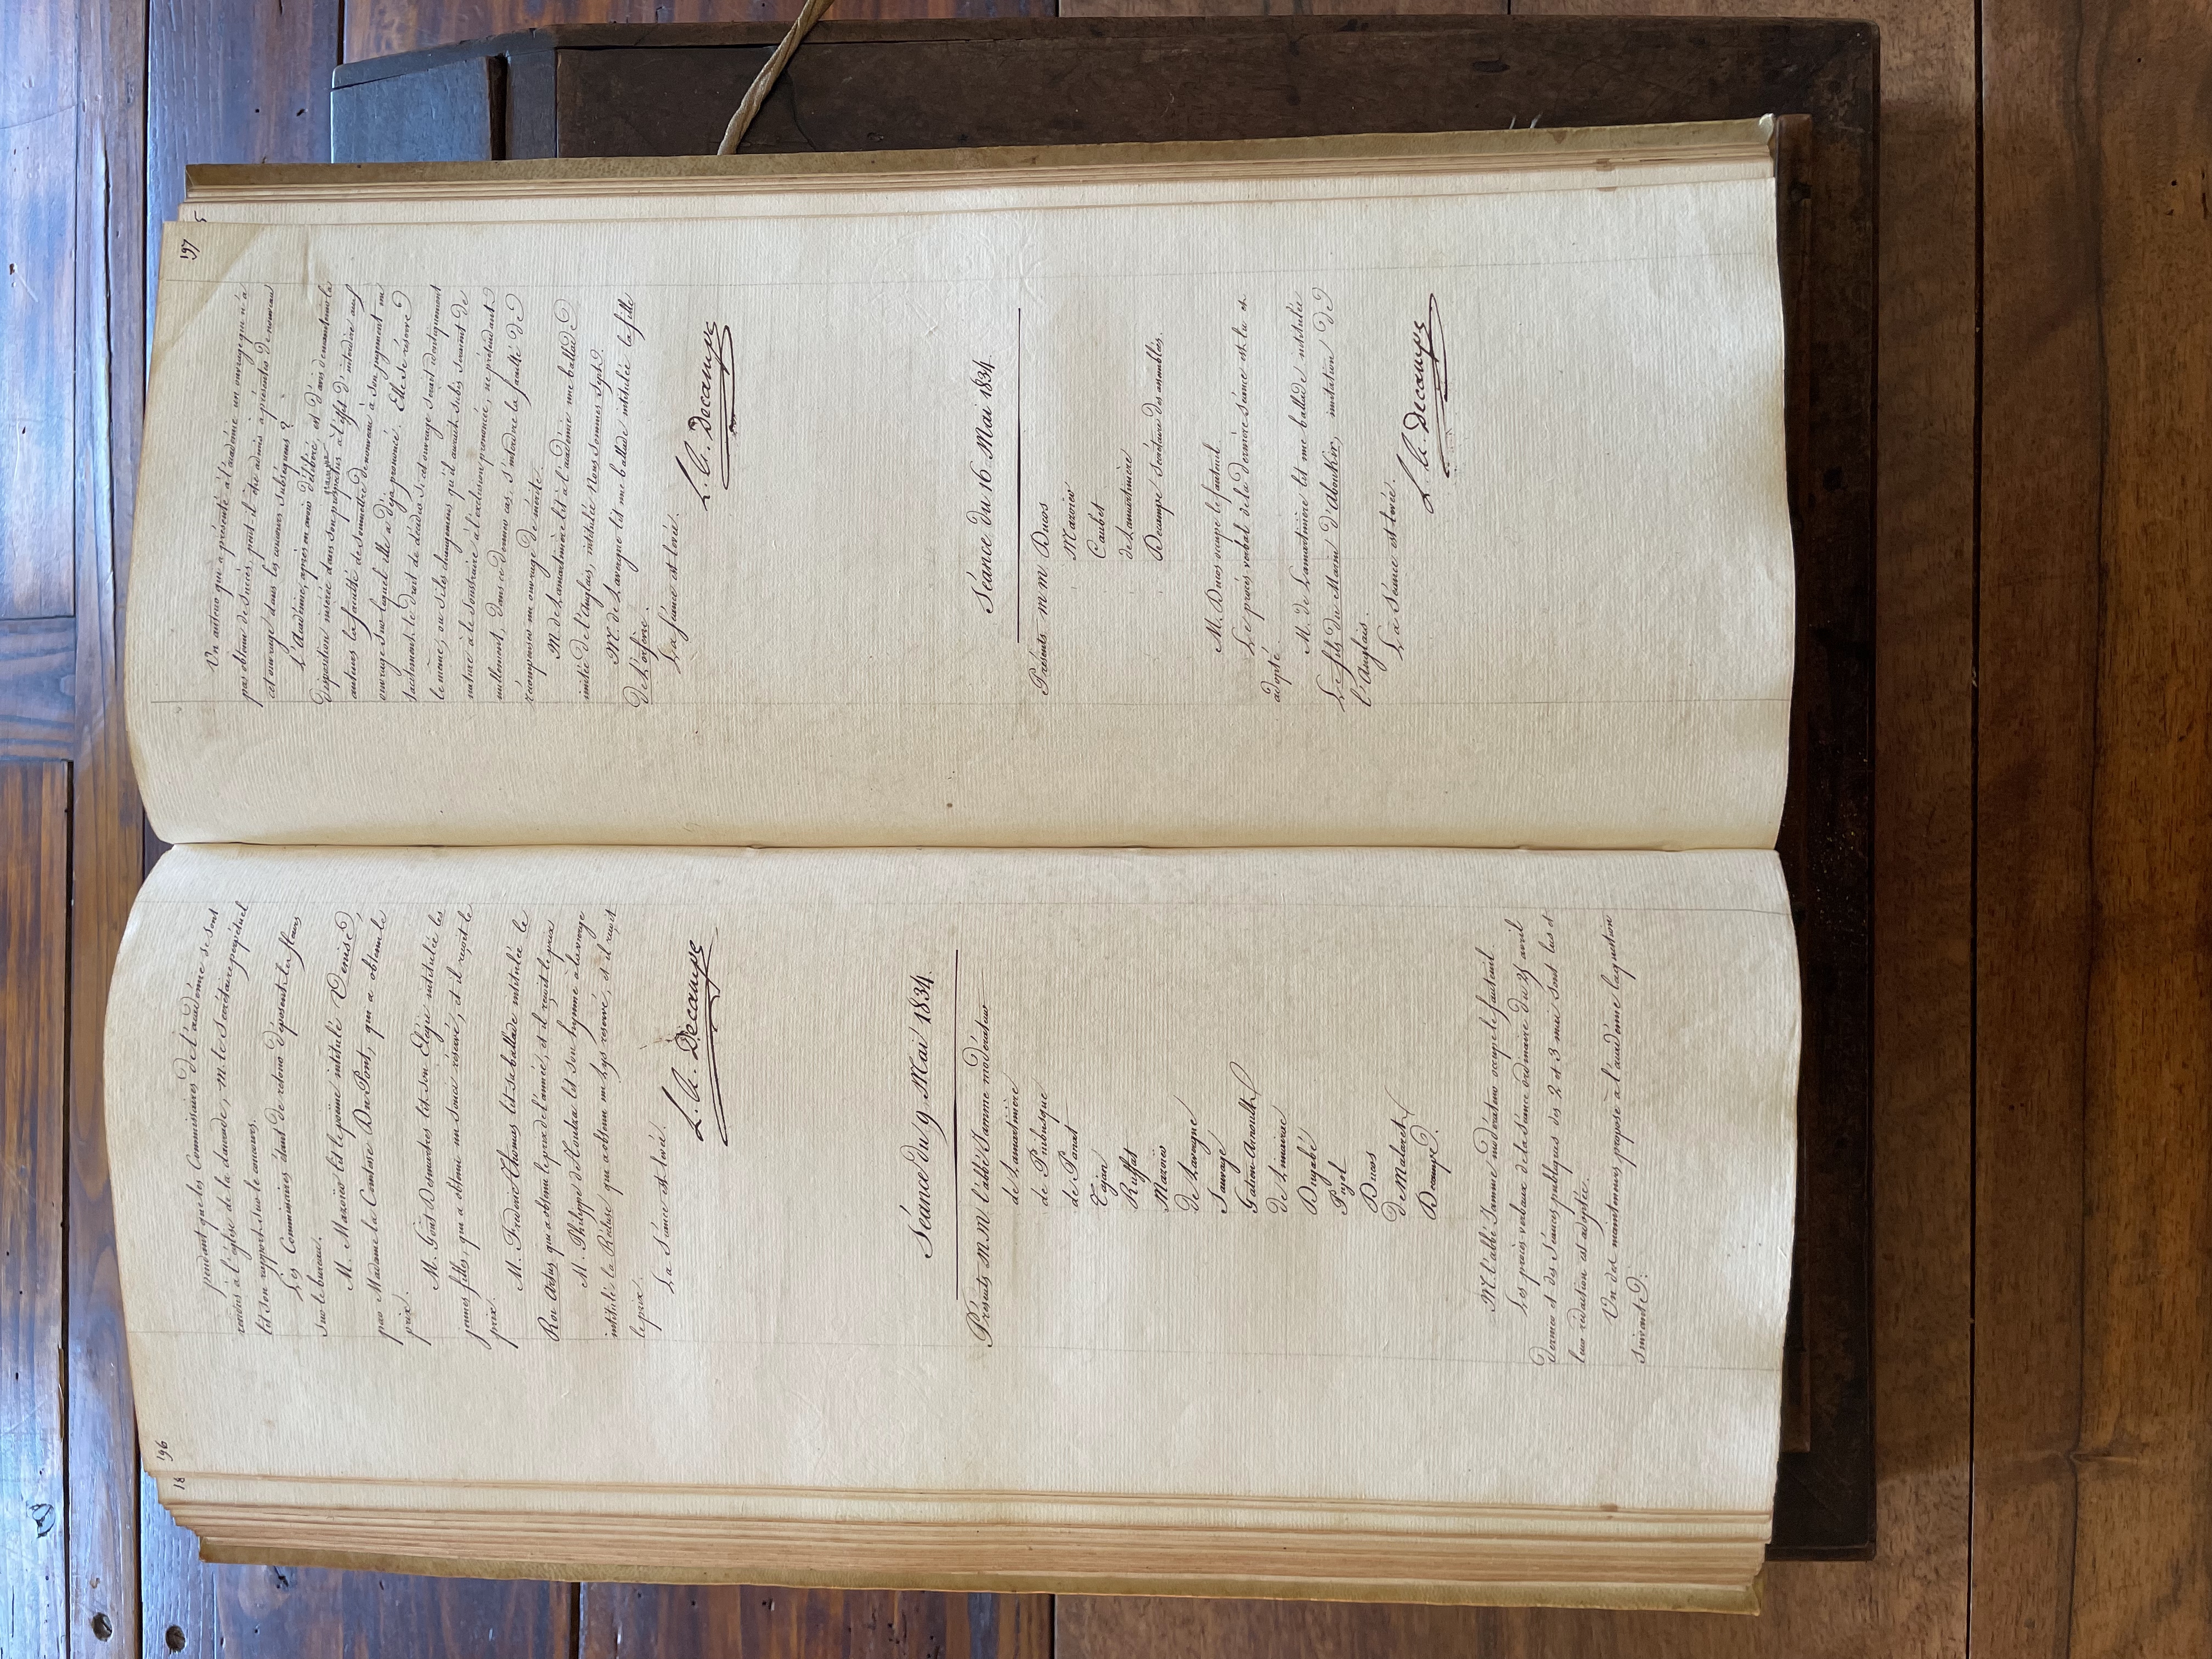 196
pendant que les Commissaires de l'académie se sont
rendus à l'église de la daurade, M. le Secrétaire perpétuel
lit son rapport sur le concours.
Les Commissaires étant de retour déposent les fleurs
sur le bureau.
M. Mazoïer lit le poëme intitulé Venise,
par Madame la Comtesse Du Pont, qui a obtenu le
prix.
M. Gout Desmartres lit son Elégie intitulée les
jeunes filles, qui a obtenu un souci réservé, et il reçoit le
prix.
M. Fréderic Thomas lit sa ballade intitulée le
Roi Artus qui a obtenu le prix de l'année, et il reçoit le prix
M. Philippe d'Houtau lit son hymne à la vierge
intitulé la Récluse qui a obtenu un Lys réservé, et il reçoit
le prix.
La Séance est levée.
L. A. Decampe
Séance du 9 Mai 1834.
Présents MM. l'abbé Jamme modérateur
de Lamartinière
de Puibusque
de Panat
Tajan
Ruffat
Mazoïer
de Lavergne
Sauvage
Gatien-Arnoult
de Limairac
Dugabé
Pujol
Ducos
De Malaret
Decampe.
M. l'abbé Jamme modérateur occupe le fauteuil
Les procès-verbaux de la séance ordinaire du 25 avril
dernier et des séances publiques des 2 et 3 mai sont lus et
leur rédaction est adoptée.
Un des mainteneurs propose à l'académie la question
suivante.
197
Un auteur qui a présenté à l'académie un ouvrage qui n'a
pas obtenu de succès, peut-il être admis à présenter de nouveau
cet ouvrage dans les concours subséquens?
L'Académie, après en avoir délibéré, est d'avis de maintenir la
disposition insérée dans son programme à l'effet d'interdire aux
auteurs la faculté de soumettre de nouveau à son jugement un
ouvrage sur lequel elle a déjà prononcé. Elle se réserve
tacitement le droit de décider si cet ouvrage serait identiquement
le même, ou si les changemens qu'il aurait subis seraient de
nature à le soustraire à l'exclusion prononcée, ne prétendant
nullement, dans ce dernier cas, s'interdire la faculté de
récompenser un ouvrage de mérite.
M. de Lamartinière lit à l'académie une ballade
imitée de l'Anglais, intitulée Nous sommes Sept.
M. de Lavergne lit une ballade intitulée la fille
de l'orfèvre.
La séance est levée.
L. A. Decampe
Séance du 16 Mai 1834.
Présents MM Ducos
Mazoïer
Caubet
de Lamartinière
Decampe Secrétaire des assemblées.
M. Ducos occupe le fauteuil
Le procès-verbal de la dernière séance est lu et
adopté.
M. de Lamartinière lit une ballade intitulée
Le fils du Marin d'Aboukir, imitation de
l'Anglais.
La séance est levée.
L. A. Decampe